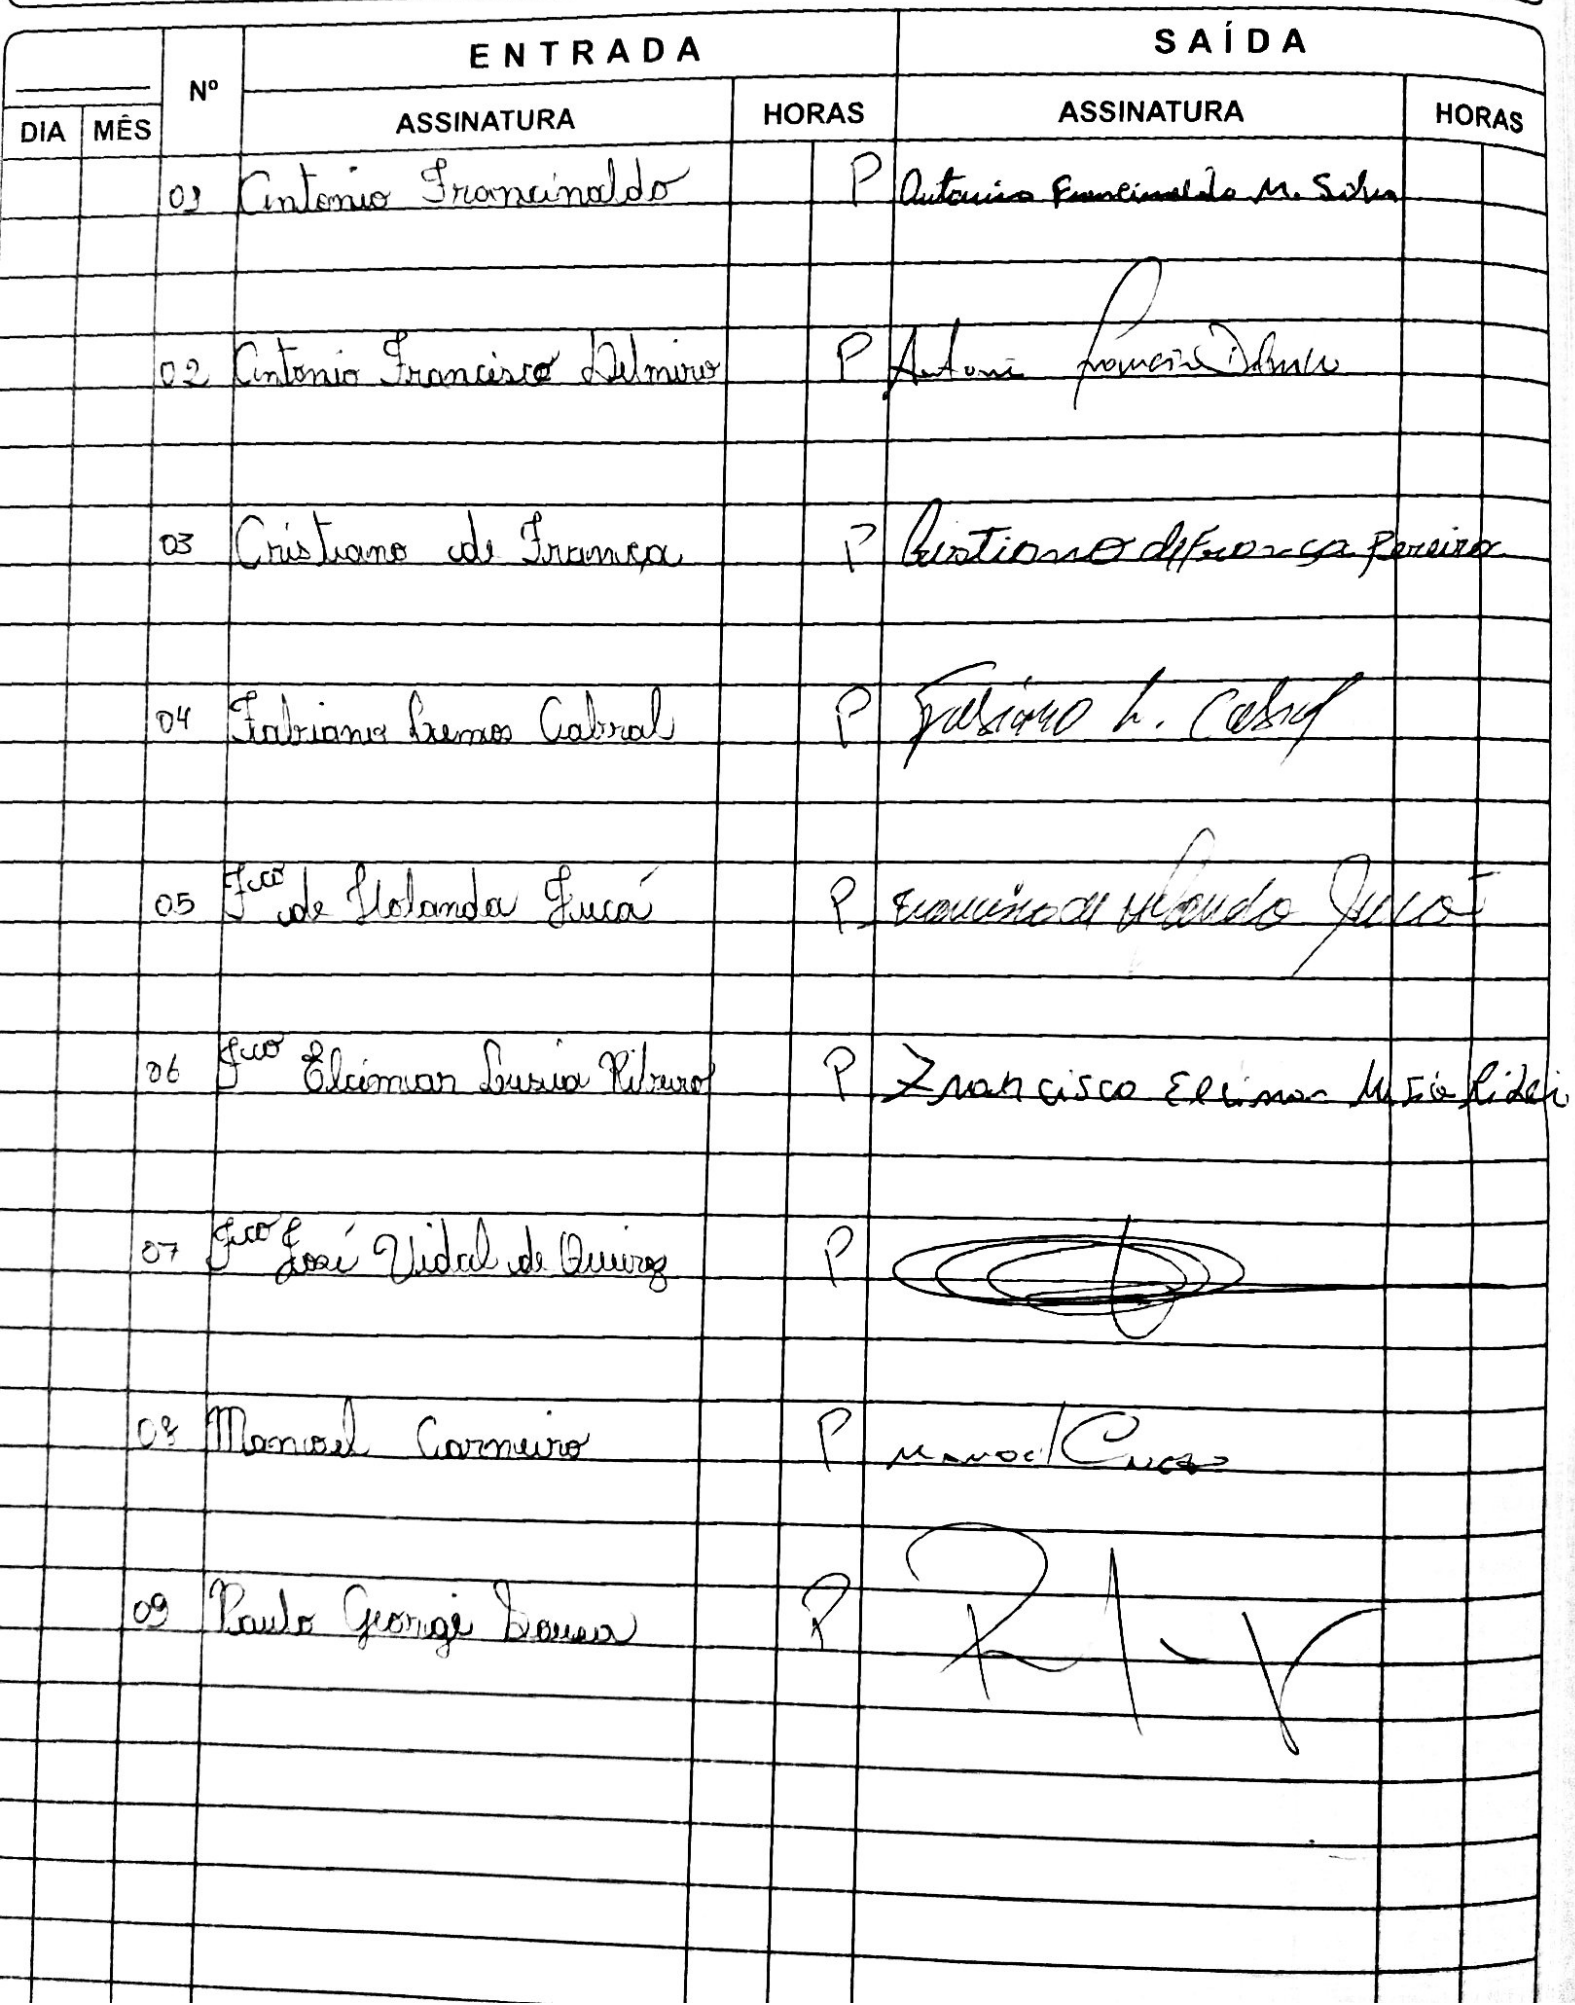 ENTRADA SAÍDA
Nº
DIA MÊS ASSINATURA HORAS ASSINATURA HORAS
01 Antonio Francinaldo P Antonio Francinaldo M. Silva
02 Antonio Francisco Delmiro P Antonio Francisco Delmiro
03 Cristiano de França P Cristiano de França Pereira
04 Fabiano Lemos Cabral P Fabiano L. Cabral
05 Fco de Holanda Jucá P Francisco de Holanda Jucá
06 Fco Elcimar Ribeiro P Francisco Elcimar
07 Fco José Vidal de Queiroz P
08 Manoel Carneiro P Manoel
09 Paulo George Sousa P